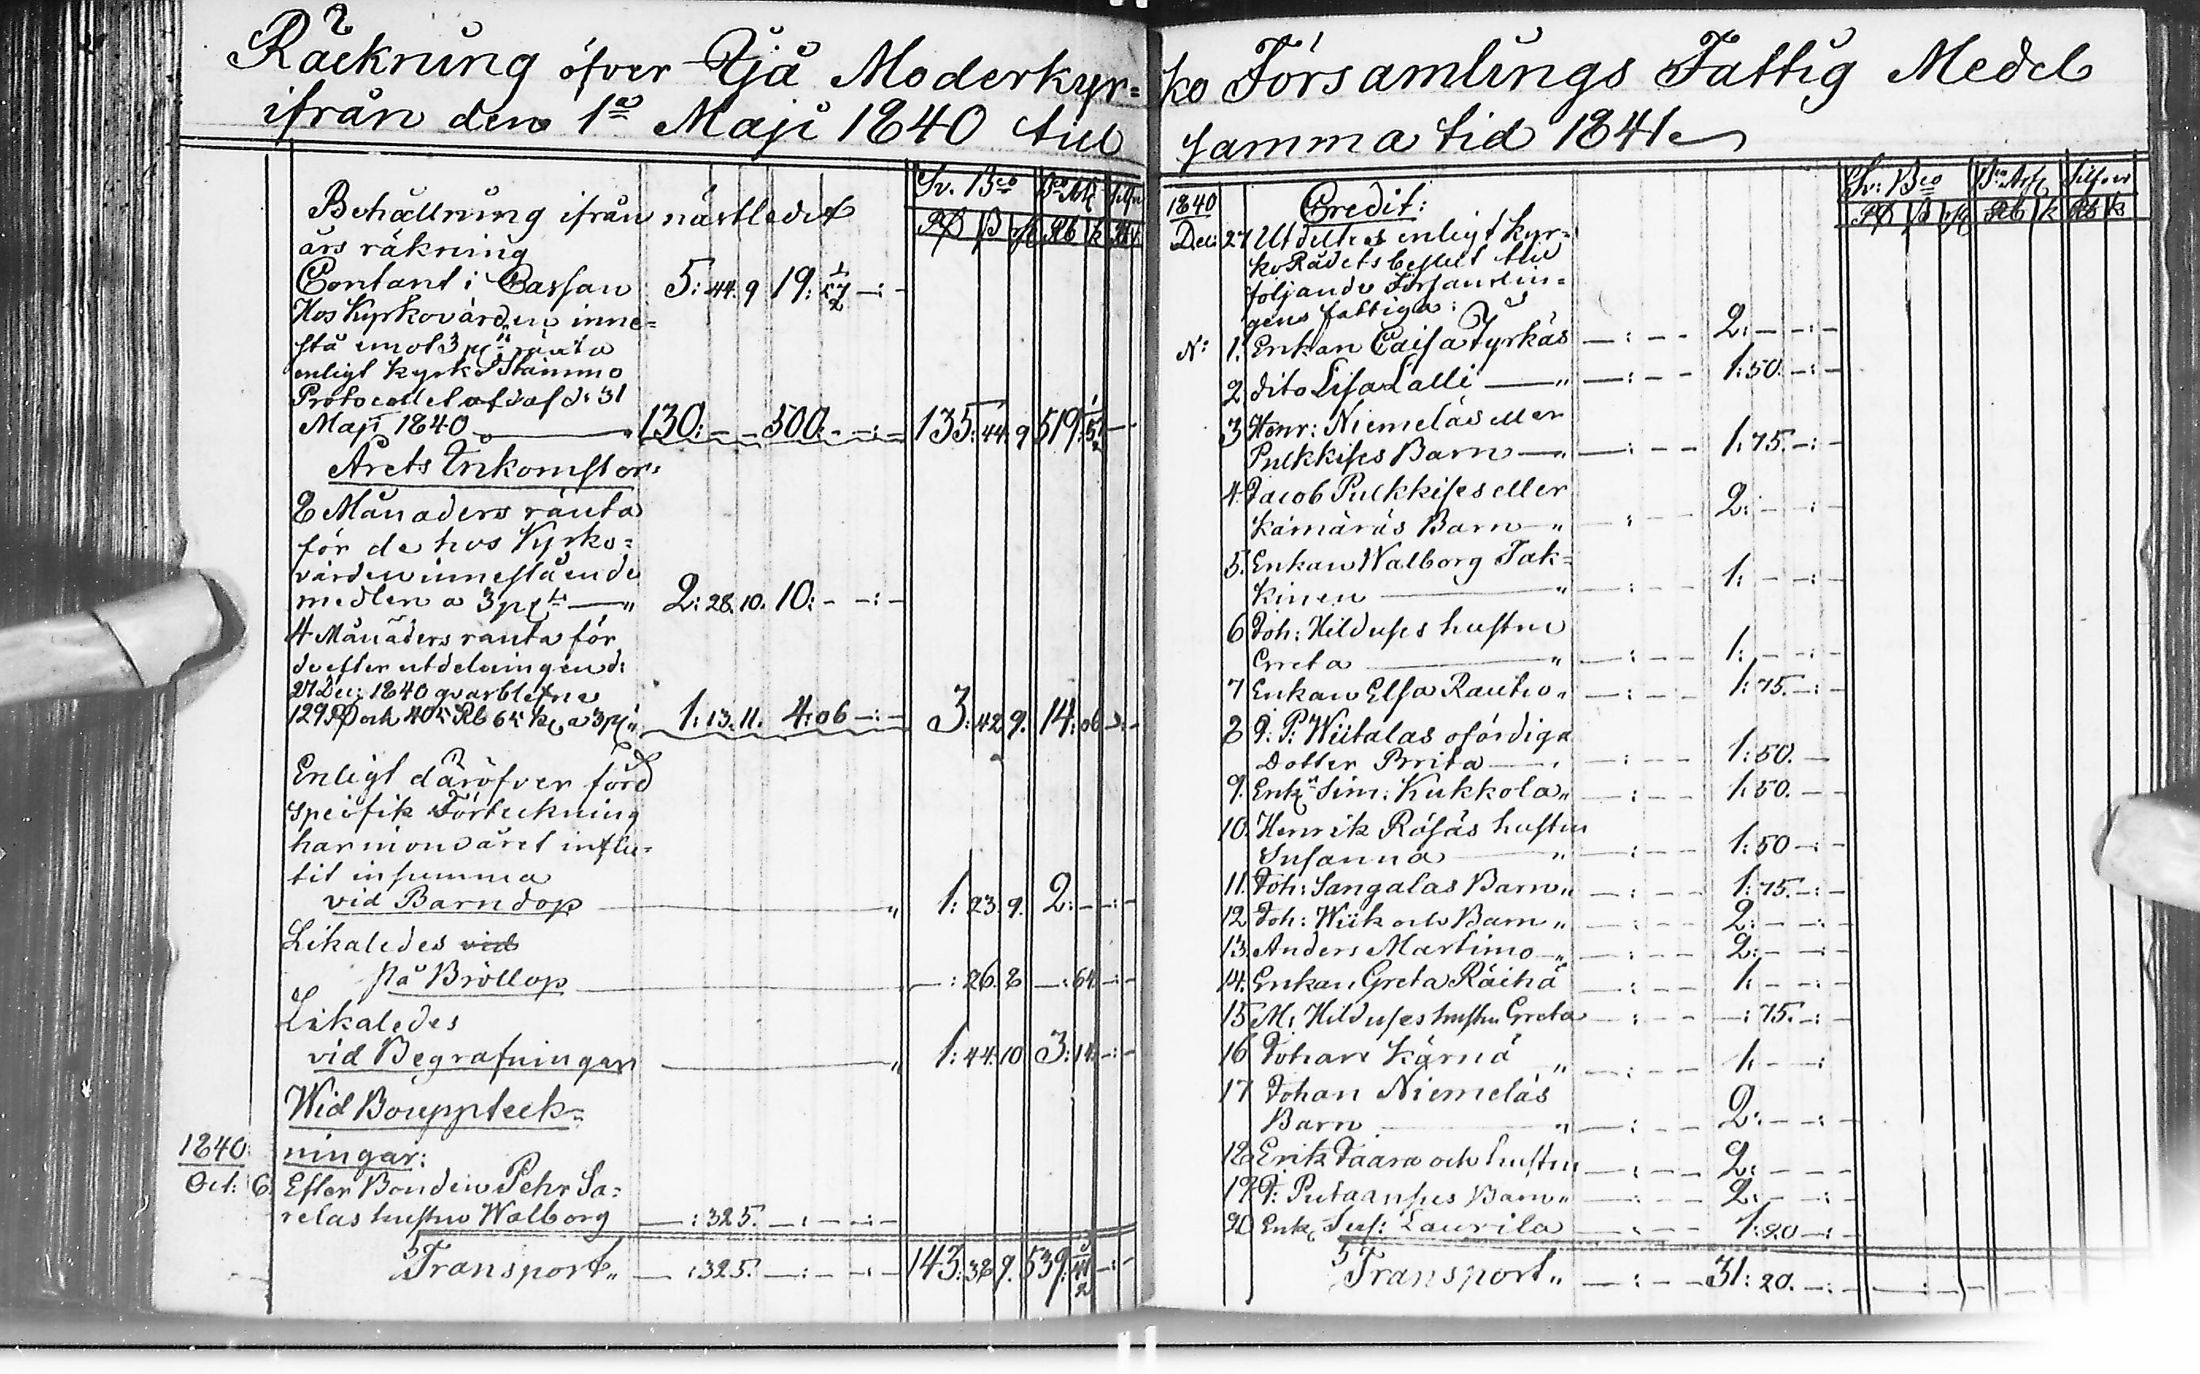 Räckning öfver Ijå Moderkyr=
ifrån den 1ª Maji 1840 till
Sv. Bco Bco Ass Silfv
RD ß rst Rb k Rb k
Behållning ifrån nästledit
års räkning
Contant i Cassan 5: 44. 9 19: 57 1/2 -:-
Hos Kyrkovärden inne=
stå emot 3 pct ränta
enligt KyrkoStämmo
Protocollet af d. 31
Maji 1840 130: - - 500: - -:- 135: 44. 9 519: 57 1/2 -
Årets Inkomster:
8 Månaders ränta
för de hos Kyrko=
värden innestående
medlen a 3 pct — " 2: 28. 10. 10: - -:-
4 Månaders ränta för
de efter utdelningen d:
27 Dec: 1840 qvarblefne
129 RD och 405 Rb 65 k a 3 pct " 1: 13. 11. 4: 06 -:- 3: 42. 9. 14: 06 -:-
Enligt däröfver förd
specifik Förteckning
har inom året influ=
tit in summa
vid Barndop — " 1: 23. 9. 2: - -:-
Likaledes vid
på Bröllop — -: 26. 8 -: 64. -:-
Likaledes
vid Begrafningar — " 1: 44. 10 3: 14. -:-
Wid Bouppteck=
1840 ningar:
Oct: 6. Efter Bonden Pehr Sa=
relas hustru Walborg —: 325. —:- -:-
Transport " —: 325. —:- -:- 143: 38 9. 539: 41 1/2 -:-
ko Församlings Fattig Medel
samma tid 1841
Sv: Bco Bco Ass Silfver
RD ß rst Rb k Rb k
1840 Credit:
Dec: 27 Utdeltes enligt Kyr=
ko Rådets beslut till
följande Församlin=
gens fattiga:
N: 1. Enkan Caisa Tyrkäs —:- - 2: - -:-
2 dito Lisa Lalli — " —:- - 1: 50. -:-
3 Henr: Niemeläs eller
Pulkkises Barn — " —:- - 1: 75. -:
4. Jacob Pulkkises eller
Kämäräs Barn — " —:- - 2: - -:
5. Enkan Walborg Tak=
kinen — " —:- - 1: - -:
6 Joh: Hilduses hustru
Greta — " —:- - 1: - -:
7 Enkan Elsa Rautio " —:- - 1: 75. -:
8 J: P: Wiitalas ofördiga
Dotter Brita — " —:- - 1: 50. -
9. Enk Sim: Kukkola " —:- - 1: 50. -
10. Henrik Rösäs hustru
Susanna — " —:- - 1: 50 -:
11. Joh: Sangalas Barn " —:- - 1: 75. -:
12 Joh: Wiik och Barn " —:- - 2: - -:
13. Anders Martimo — " —:- - 2: - -:
14. Enkan Greta Räihä —:- - 1: - -:
15 M: Hilduses hustru Greta —:- - -: 75. -:
16 Johan Kärnä " —:- - 1: - -:
17 Johan Niemeläs
Barn — " —:- - 2: - -:
18 Erik Jaara och hustru —:- - 2: - -
19. J: Putaansus Barn " —:- - 2: - -:
20 Enk Sus: Laurila —:- - 1: 20 -:
Transport " —:- - 31: 20. -: